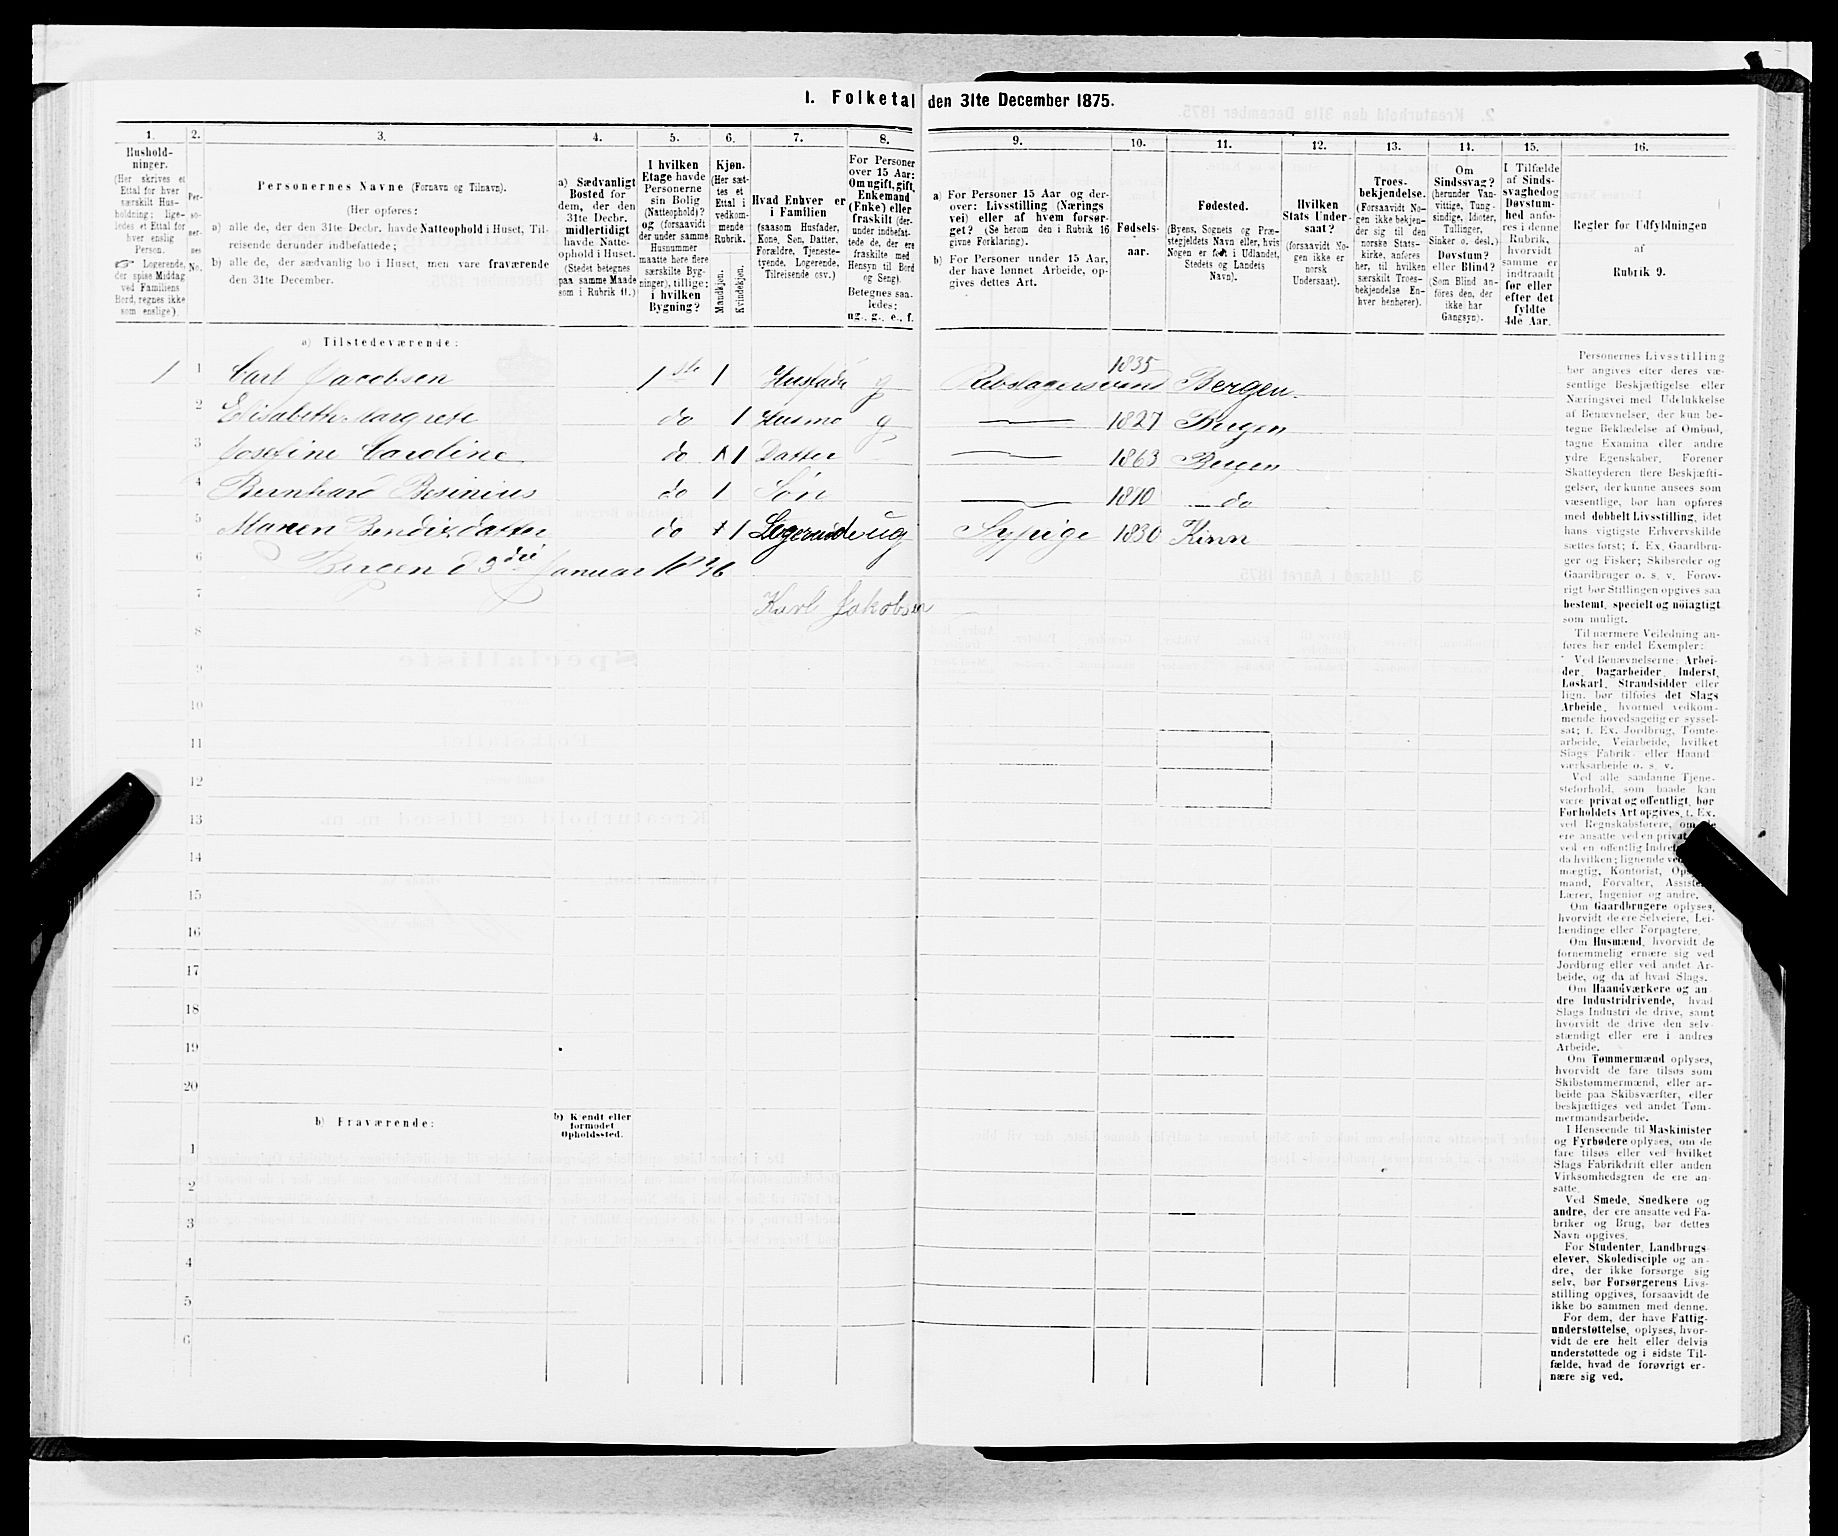 1. Folketal den 31te December 1875.
1. 2. 3. 4. 5. 6. 7. 8. 9. 10. 11. 12. 13. 14. 15. 16.
Husholdninger.
(Her skrives et
Ettal for hver
særskilt Husholdning;
ligeledes et Ettal for
hver enslig
Person.
☞ Logerende,
der spise Middag
ved Familiens
Bord, regnes ikke
som enslige).
Personernes No.
Personernes Navne (Fornavn og Tilnavn).
(Her opføres:
a) alle de, der den 31te Decbr. havde Natteophold i Huset, Tilreisende derunder indbefattede;
b) alle de, der sædvanlig bo i Huset, men vare fraværende
den 31te December.
a) Sædvanligt
Bosted for
dem, der den
31te Decbr.
midlertidigt
havde Natteophold i Huset.
(Stedet betegnes
paa samme Maade
som i Rubrik 11.)
I hvilken
Etage havde
Personerne
sin Bolig
(Natteophold)?
og (forsaavidt
der under samme
Husnummer
maatte høre flere
særskilte Bygninger), tillige:
i hvilken
Bygning?
Kjøn.
(Her sættes et
Ettal i
vedkommende
Rubrik.
Mandkjøn.
Kvindekjøn.
Hvad Enhver er
i Familien
(saasom Husfader,
Kone, Søn, Datter,
Forældre, Tjenestetyende, Logerende,
Tilreisende osv.)
For Personer
over 15 Aar:
Om ugift, gift,
Enkemand
(Enke) eller
fraskilt (derunder indbefattede de, der ere
fraskilte med
Hensyn til Bord
og Seng).
Betegnes saaledes:
ug., g., e., f.
a) For Personer 15 Aar og derover: Livsstilling (Næringsvei) eller af hvem forsørget? (Se herom den i Rubrik 16
givne Forklaring).
b) For Personer under 15 Aar,
der have lønnet Arbeide, opgives dettes Art.
Fødselsaar.
Fødested.
(Byens, Sognets og Præstegjeldets Navn eller, hvis
Nogen er født i Udlandet,
Stedets og Landets
Navn).
Hvilken
Stats Undersaat?
(forsaavidt Nogen ikke er
norsk
Undersaat).
Troesbekjendelse.
(Forsaavidt Nogen ikke bekjender sig til den
norske Statskirke, anføres
her, til hvilken
særskilt Troesbekjendelse Enhver henhører).
Om
Sindssvag?
(herunder Vanvittige, Tungsindige, Idioter,
Tullinger,
Sinker o. desl.)
Døvstum?
eller Blind?
(Som Blind anføres den, der
ikke har
Gangsyn).
I Tilfælde
af Sindssvaghed og
Døvstumhed anføres i denne
Rubrik,
hvorvidt
samme er
indtraadt
før eller
efter det
fyldte
4de Aar.
Regler for Udfyldningen
af
Rubrik 9.
a) Tilstedeværende:
1 1 Carl Jacobsen 1 ste 1 Husfader g 1835 Bergen
2 Elisabeth Margrete do 1 g 1827 Bergen
3 Josefine Caroline do 1 Datter 1863 Bergen
4 Bernhard do 1 Søn 1870 do
5 Maren Bendixdatter do 1 Logerende ug Sypige 1830 Kinn
6 Bergen d 3die Januar 1876
7 Karl Jakobsen
8
9
10
11
12
13
14
15
16
17
18
19
20
b) Fraværende:
b) Kjendt eller
formodet
Opholdssted.
1
2
3
4
5
6
Personernes Livsstilling
bør angives efter deres væsentlige Beskjæftigelse eller
Næringsvei med Udelukkelse
af Benævnelser, der kun betegne Beklædelse af Ombud,
tagne Examina eller andre
ydre Egenskaber. Forener
Skatteyderen flere Beskjæftigelser, der kunne ansees som
væsentlige, bør han opføres
med dobbelt Livsstilling, idet
hans vigtigste Erhvervskilde
sættes først; f. Ex. Gaardbruger og Fisker; Skibsreder og
Gaardbruger o. s. v. Forøvrigt bør Stillingen opgives saa
bestemt, specielt og nöiagtigt
som muligt.
Til nærmere Veiledning anføres her endel Exempler:
Ved Benævnelserne: Arbeider, Dagarbeider, Inderst,
Løskarl, Strandsidder eller
lign. bør tilføies det Slags
Arbeide, hvormed vedkommende hovedsagelig er sysselsat; f. Ex. Jordbrug, Tomtearbeide, Veiarbeide, hvilket
Slags Fabrik- eller Haandværksarbeide o. s. v.
Ved alle saadanne Tjenesteforhold, som baade kan
være privat og offentligt, bør
Forholdets Art opgives, f. Ex.
ved Regnskabsførere, om de
ere ansatte ved en privat
ved en offentlig
da hvilken; lignende ved
mægtig, Kontorist,
mand, Forvalter,
Lærer, Ingeniør og andre.
Om Gaardbrugere oplyses,
hvorvidt de ere Selveiere, Leilændinge eller Forpagtere.
Om Husmænd, hvorvidt de
fornemmelig ernære sig ved
Jordbrug eller ved andet Arbeide, og da af hvad Slags.
Om Haandværkere og andre Industridrivende, hvad
Slags Industri de drive, samt
hvorvidt de drive den selvstændigt eller ere i andres
Arbeide.
Om Tømmermænd oplyses,
hvorvidt de fare tilsøs som
Skibstømmermænd, eller arbeide paa Skibsværfter, eller
beskjæftiges ved andet Tømmermandsarbeide.
I Henseende til Maskinister
og Fyrbødere oplyses, om de
fare tilsøs eller ved hvilket
Slags Fabrikdrift eller anden
Virksomhedsgren de ere ansatte.
Ved Smede, Snedkere og
andre, der ere ansatte ved Fabriker og Brug, bør dettes
Navn opgives.
For Studenter, Landbrugselever, Skoledisciple og andre, der ikke forsørge sig
selv, bør Forsørgerens Livsstilling opgives, forsaavidt de
ikke bo sammen med denne.
For dem, der have Fattigunderstøttelse, oplyses, hvorvidt de ere helt eller delvis
understøttede og i sidste Tilfælde, hvad de forøvrigt ernære sig ved.